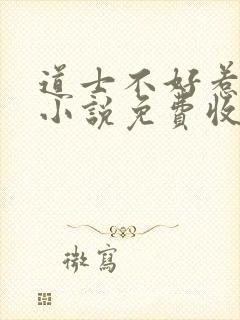 道士不好惹
小说免費收
微寫